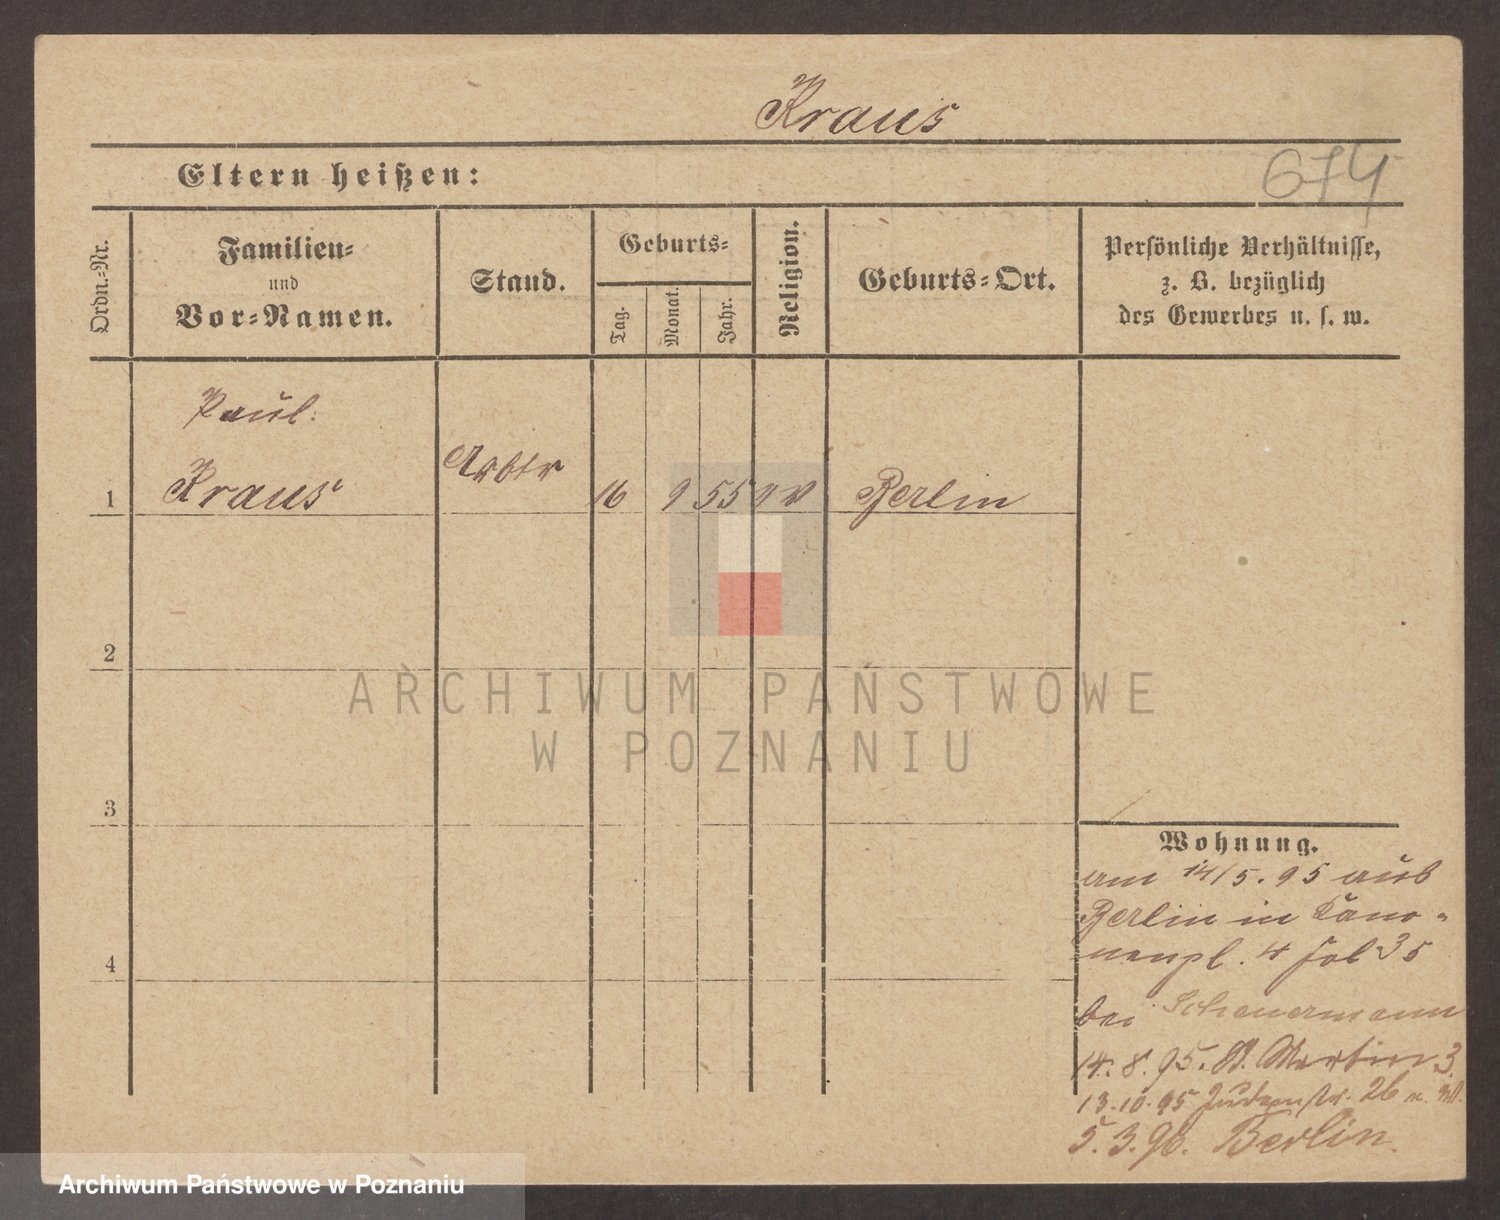 Kraus
Eltern heißen:
674
Ordn.=Nr.
Familien=
und
Vor=Namen.
Stand.
Geburts=
Tag.
Monat.
Jahr.
Religion.
Geburts=Ort.
Persönliche Verhältnisse,
z. B. bezüglich
des Gewerbes u. s. w.
Paul.
1 Kraus Arbtr 16 9 55 ev Berlin
2
3
4
ARCHIWUM PAŃSTWOWE
W POZNANIU
Wohnung.
am 14/5. 95 aus
Berlin in Kano=
nenpl. 4 fol 35
bei Scheuermann
14. 8. 95. St. Martin 3.
13.10.95 Judenstr. 26
5. 3. 96. Berlin.
Archiwum Państwowe w Poznaniu